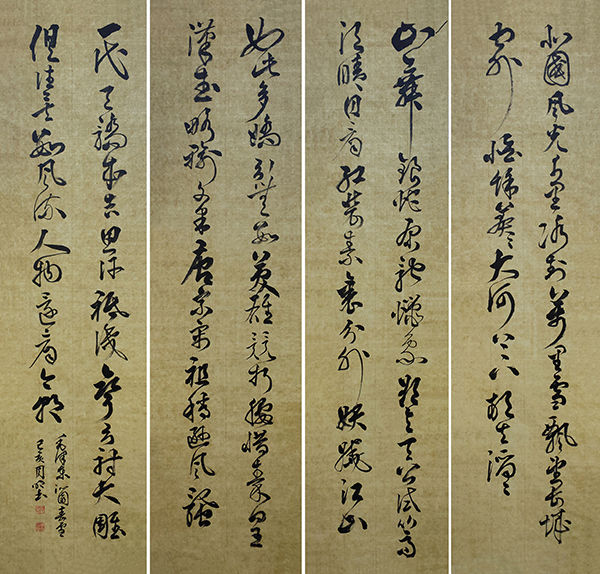 北國風光千里冰封萬里雪飄望長城
內外惟餘莽莽大河上下頓失滔滔
山舞銀蛇原馳蠟象欲與天公試比高
須晴日看紅裝素裹分外妖嬈江山
如此多嬌引無數英雄競折腰惜秦皇
漢武略輸文采唐宗宋祖稍遜風騷
一代天驕成吉思汗祇識彎弓射大雕
俱往矣數風流人物還看今朝
毛澤東沁園春雪
己亥周